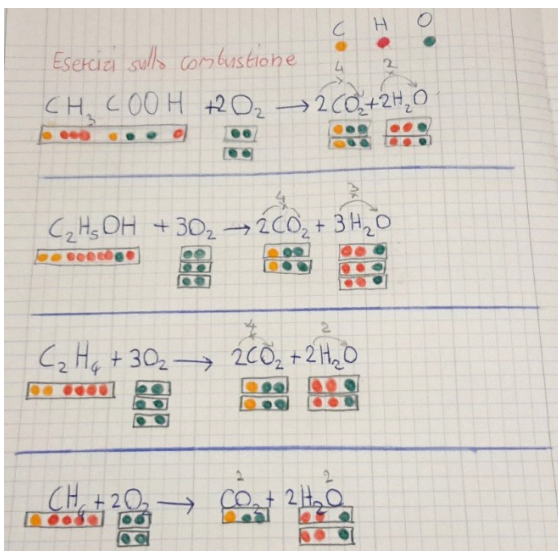 C H O
Esercizi sulla combustione
4 2
CH₃COOH +2O₂ → 2CO₂+2H₂O
4 3
C₂H₅OH + 3O₂ → 2CO₂ + 3H₂O
4 2
C₂H₄ + 3O₂ → 2CO₂ + 2H₂O
2 2
CH₄ + 2O₂ → CO₂ + 2H₂O